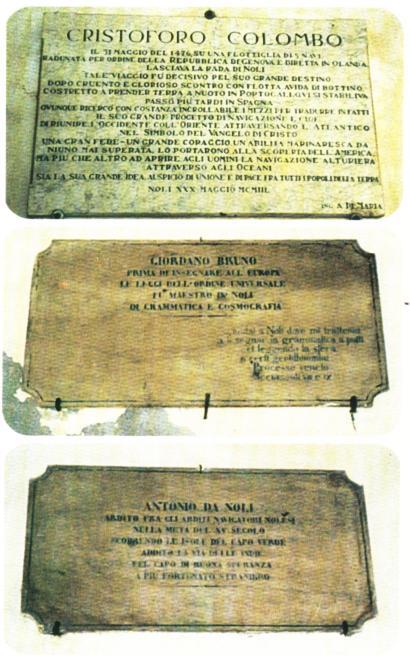 CRISTOFORO COLOMBO
IL 31 MAGGIO DEL 1476, SU UNA FLOTTIGLIA DI 5 NAVI
RADUNATA PER ORDINE DELLA REPUBBLICA DI GENOVA E DIRETTA IN OLANDA
LASCIAVA LA RADA DI NOLI
TALE VIAGGIO FU DECISIVO PEL SUO GRANDE DESTINO
DOPO CRUENTO E GLORIOSO SCONTRO CON FLOTTA AVIDA DI BOTTINO
COSTRETTO A PRENDER TERRA A NUOTO IN PORTOGALLO VI SI STABILIVA
PASSÒ PIÙ TARDI IN SPAGNA
OVUNQUE RICERCÒ CON COSTANZA INCROLLABILE I MEZZI PER TRADURRE IN FATTI
IL SUO GRANDE PROGETTO DI NAVIGAZIONE E CIOÈ
DI RIUNIRE L'OCCIDENTE COLL'ORIENTE ATTRAVERSANDO L'ATLANTICO
NEL SIMBOLO DEL VANGELO DI CRISTO
UNA GRAN FEDE - UN GRANDE CORAGGIO UN'ABILITÀ MARINARESCA DA
NIUNO MAI SUPERATA, LO PORTARONO ALLA SCOPERTA DELL'AMERICA,
MA PIÙ CHE ALTRO AD APRIRE AGLI UOMINI LA NAVIGAZIONE ALTURIERA
ATTRAVERSO AGLI OCEANI
SIA LA SUA GRANDE IDEA, AUSPICIO DI UNIONE E DI PACE FRA TUTTI I POPOLI DELLA TERRA
NOLI XXX MAGGIO MCMLII.
ING. A. DE MARIA
GIORDANO BRUNO
PRIMA DI INSEGNARE ALL'EUROPA
LE LEGGI DELL'ORDINE UNIVERSALE
FU MAESTRO IN NOLI
DI GRAMMATICA E COSMOGRAFIA
andai a Noli dove mi trattenni
a insegnar la grammatica a putti
et leggendo la sfera
a certi gentilhomini
Processo veneto
ANTONIO DA NOLI
ARDITO FRA GLI ARDITI NAVIGATORI NOLESI
NELLA METÀ DEL XV SECOLO
SCOPRENDO LE ISOLE DEL CAPO VERDE
ADDITÒ LA VIA DELLE INDIE
PEL CAPO DI BUONA SPERANZA
A PIÙ FORTUNATO STRANIERO